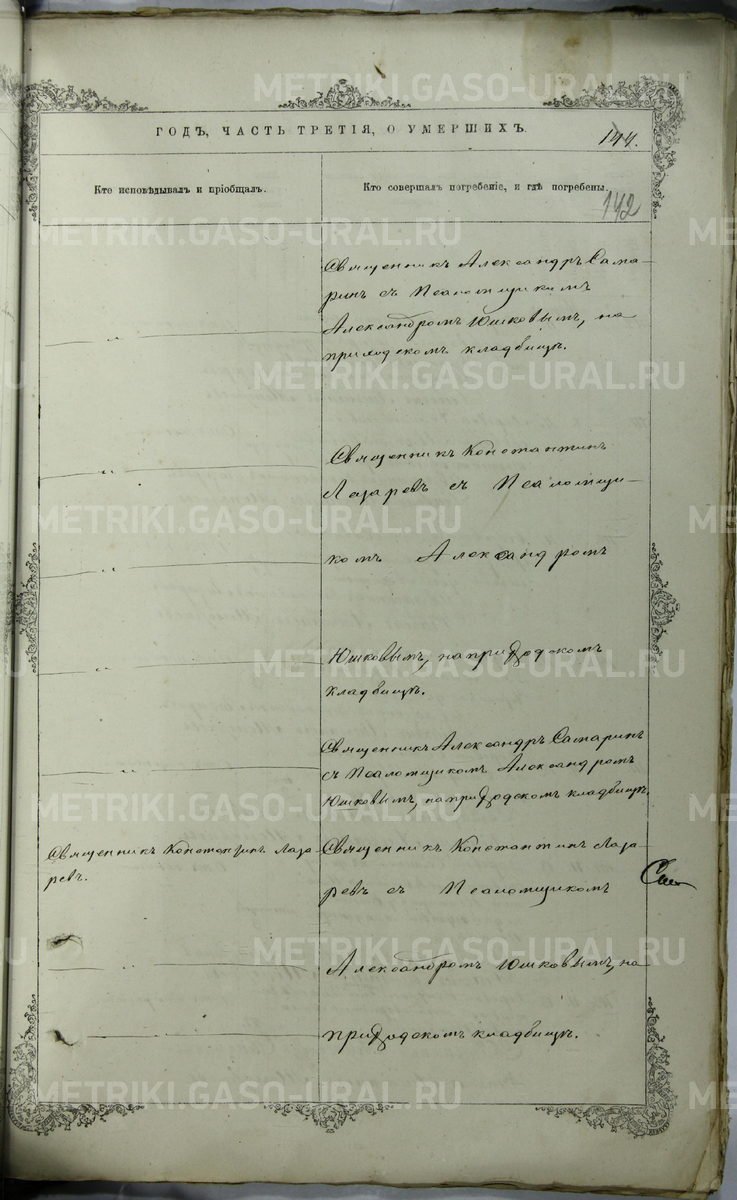 METRIKI.GASO-URAL.RU
ГОДЪ, ЧАСТЬ ТРЕТІЯ, О УМЕРШИХЪ.
144.
Кто исповѣдывалъ и пріобщалъ.
Кто совершалъ погребеніе, и гдѣ погребены.
142
Священникъ Александръ Сама-
ринъ съ Псаломщикомъ
Александромъ Юшковымъ, на
приходскомъ кладбищѣ.
Священникъ Константинъ
Лазаревъ съ Псаломщи-
комъ Александромъ
Юшковымъ, на приходскомъ
кладбищѣ.
Священникъ Александръ Самаринъ
съ Псаломщикомъ Александромъ
Юшковымъ, на приходскомъ кладбищѣ.
Священникъ Константинъ Лаза-
ревъ.
Священникъ Константинъ Лаза-
ревъ съ Псаломщикомъ
Александромъ Юшковымъ, на
приходскомъ кладбищѣ.